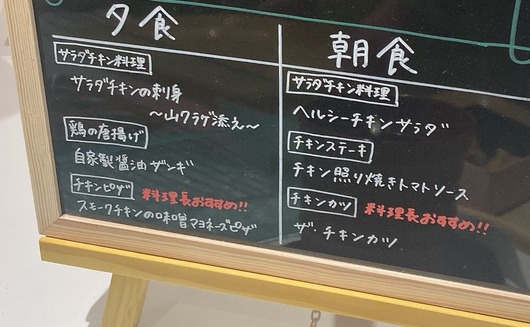 夕食
サラダチキン料理
サラダチキンの刺身
〜山クラゲ添え〜
鶏の唐揚げ
自家製醤油ザンギ
チキンピザ 料理長おすすめ!!
スモークチキンの味噌マヨネーズピザ
朝食
サラダチキン料理
ヘルシーチキンサラダ
チキンステーキ
チキン照り焼きトマトソース
チキンカツ 料理長おすすめ!!
ザ・チキンカツ